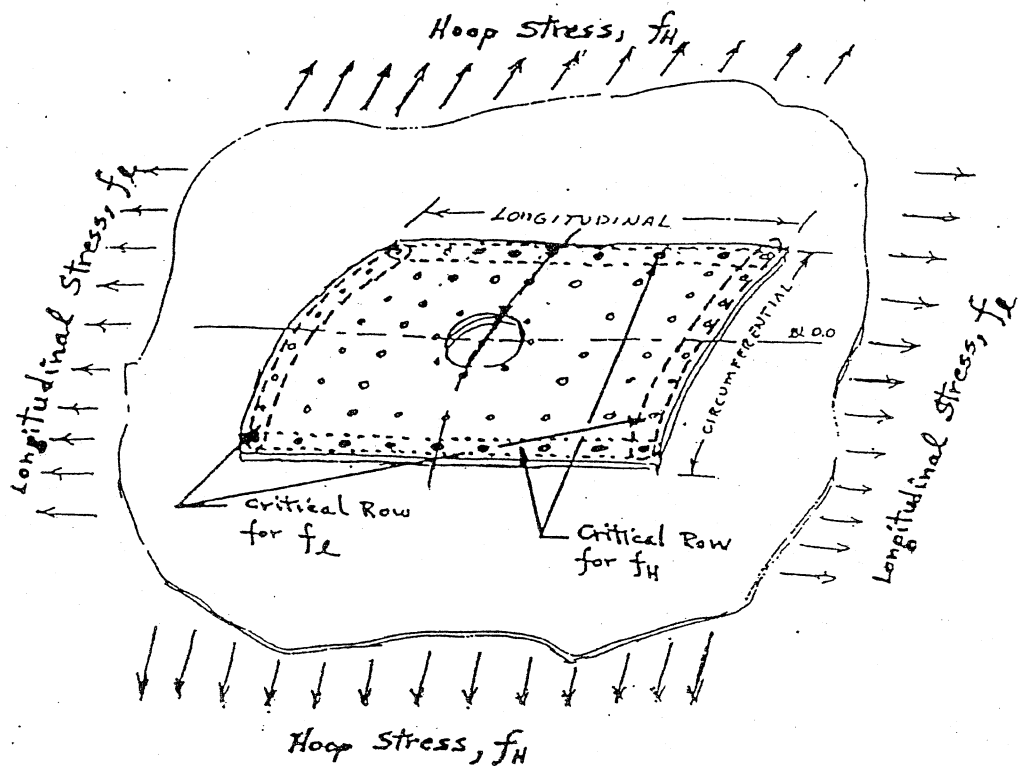 Hoop Stress, fH
Longitudinal Stress, fl
LONGITUDINAL
CIRCUMFERENTIAL
BL 0.0
Longitudinal Stress, fl
Critical Row
for fl
Critical Row
for fH
Hoop Stress, fH